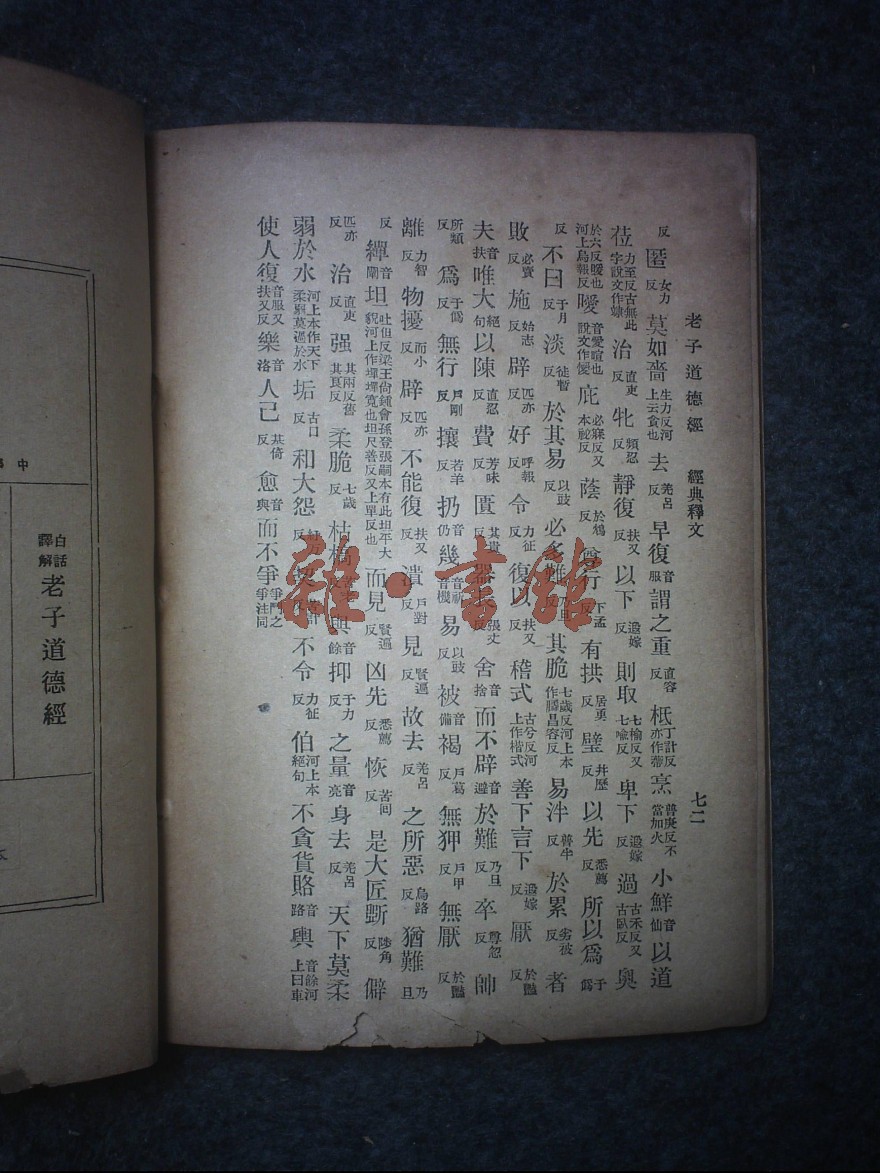 老子道德經 經典釋文 七二
反匿女力反莫如嗇生力反河上云貪也去羌呂反早復音服謂之重直容反柢丁計反亦作蔕烹普庚反不當加火小鮮音仙以道
莅力至反古無此字說文作治直吏反牝頻忍反靜復扶又反以下遐嫁反則取七榆反又七喻反卑下遐嫁反過古禾反又古臥反奧
於六反暖也河上烏報反曖音愛暄也說文作僾庇必寐反又本祕反蔭於鴆反尊行下孟反有拱居勇反璧井歷反以先悉薦反所以爲于僞
反不曰于月反淡徒暫反於其易以豉反必多難乃旦反其脆七歲反河上本作昌容反易泮普半反於累劣彼反者
敗必賣反施始志反辟匹亦反好呼報反令力征反復以扶又反稽式古兮反河上作楷式善下言下遐嫁反厭於豔反
夫音扶唯大絕句以陳直忍反費芳味反匱其貴反器長張丈反舍音捨而不辟音避於難乃旦反卒尊忽反帥
所類反爲于僞反無行戶剛反攘若羊反扔音仍幾音祈音機易以豉反被音備褐戶葛反無狎戶甲反無厭於豔反
離力智反物擾而小反辟匹亦反不能復扶又反潰戶對反見賢遍反故去羌呂反之所惡烏路反猶難乃旦
反繟音闡坦吐但反梁王尚鍾會孫登張嗣本有此坦平大貌河上作墠墠寬也坦尺善反又上單反也而見賢遍反凶先悉薦反恢苦回反是大匠斲陟角反僻
匹亦反治直吏反强其兩反舊其良反柔脆七歲反枯槁苦老反與音餘抑于力反之量音亮身去羌呂反天下莫柔
弱於水河上本作天下柔弱莫過於水垢古口反和大怨紆万反契苦計反不令力征反伯河上本絕句不貪貨賂音路輿音餘河上曰車
使人復音服又扶又反樂音洛人己其倚反愈音與而不爭爭鬥之爭注同
白話譯解 老子道德經
中
雜·書館